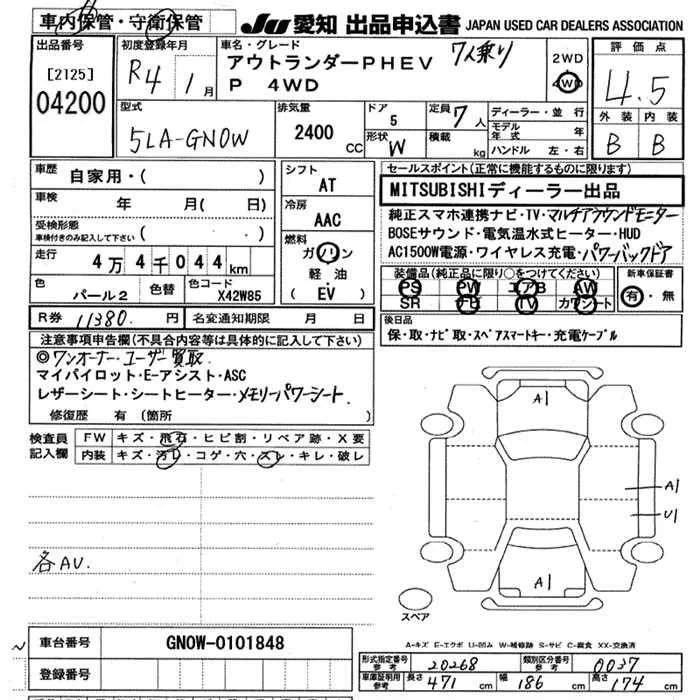 車内保管・守衛保管
JU 愛知 出品申込書 JAPAN USED CAR DEALERS ASSOCIATION
出品番号
[2125]
04200
初度登録年月
R4 1月
車名・グレード
7人乗り
アウトランダーPHEV
P 4WD
2WD
4WD
評価点
4.5
外装 内装
B B
型式
5LA-GN0W
排気量
2400 CC
ドア
5
形状 W
定員 7人
積載 kg
ディーラー・並行
モデル年式 年
ハンドル 左・右
車歴
自家用・( )
車検
年 月( 日)
受検形態
車検付きのみ記入して下さい ( )
走行
4万4千044km
色
パール2
色替
色コード
X42W85
シフト
AT
冷房
AAC
燃料
ガソリン
軽油・
( EV )
セールスポイント(正常に機能するものに限ります)
MITSUBISHIディーラー出品
純正スマホ連携ナビ・TV・マルチアラウンドモニター
BOSEサウンド・電気温水式ヒーター・HUD
AC1500W電源・ワイヤレス充電・パワーバックドア
装備品(純正品に限り○をつけてください)
PS PW エアB AW
SR TV カワシート
新車保証書
有・無
R券 11380. 円
名変通知期限 月 日
後日品
保・取・ナビ取・スペアスマートキー・充電ケーブル
注意事項申告欄(不具合内容等は具体的に記入して下さい)
◎ワンオーナー・ユーザー買取
マイパイロット・E-アシスト・ASC
レザーシート・シートヒーター・メモリーパワーシート.
修復歴 有 (箇所 )
検査員記入欄
FW キズ・飛石・ヒビ割・リペア跡・X要
内装 キズ・汚レ・コゲ・穴・スレ・キレ・破レ
各AU.
A1
A1
U1
A1
スペア
A-キズ E-エクボ U-凹み W-補修跡 S-サビ C-腐食 XX-交換済
車台番号 GN0W-0101848
登録番号
形式指定番号 参考 20268
類別区分番号 参考 0037
車庫証明用 参考 長さ 471 cm 幅 186 cm 高さ 174 cm